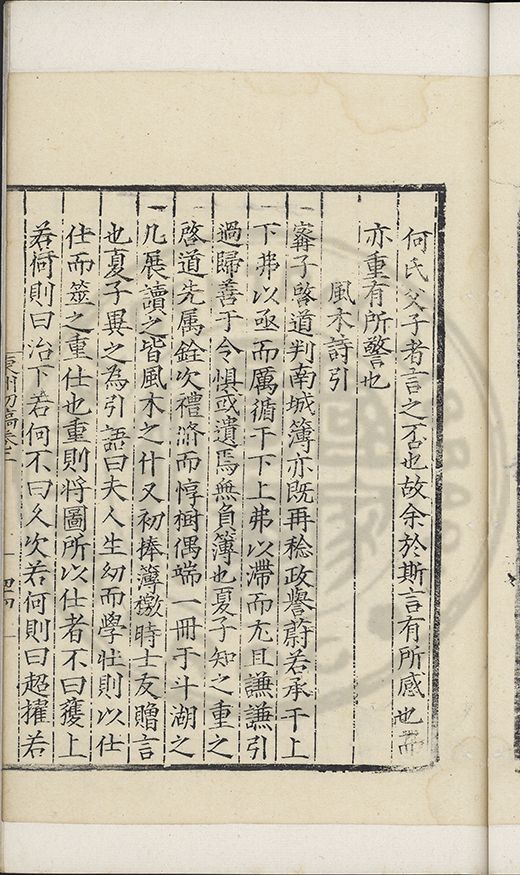 何氏父子者言之否也故余於斯言有所感也而
亦重有所警也
風木詩引
審子啓道判南城簿亦既再稔政譽蔚若承干上
下弗以亟而厲循干下上弗以滯而尤且謙謙引
過歸善于令惧或遺焉無負簿也夏子知之重之
啓道先属銓次禮滁而惇樹偶端一冊于斗湖之
几展讀之皆風木之什又初捧簿檄時士友贈言
也夏子異之為引語曰夫人生幼而學壮則以仕
仕而筮之重仕也重則将圖所以仕者不曰獲上
若何則曰治下若何不曰久次若何則曰超擢若
東洲初稿卷十
四